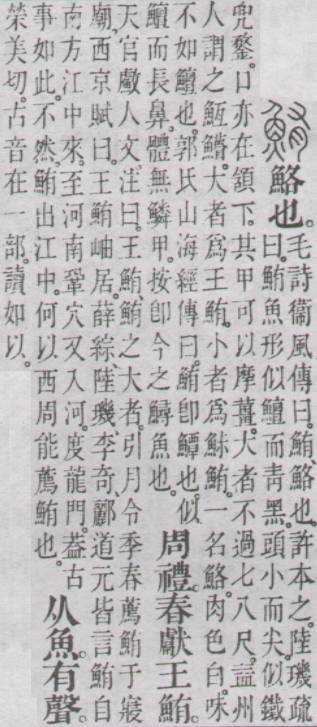 鮪鮥也。
毛詩衞風傳曰。鮪鮥也。許本之。陸璣疏
曰。鮪魚形似鱣而青黑。頭小而尖。似鐵
兜鍪。口亦在頷下。其甲可以摩薑。大者不過七八尺。益州
人謂之大者爲王鮪。小者爲鮛鮪。一名鮥。肉色白。味
不如鱣也。郭氏山海經傳曰。鮪卽鱏也。似
鱣而長鼻。體無鱗甲。按卽今之鱘魚也。
周禮。春獻王鮪。
天官䱷人文。注曰。王鮪、鮪之大者。引月令季春薦鮪于寢
廟。西京賦曰。王鮪岫居。薛綜、陸璣、李奇、酈道元皆言鮪自
南方江中來。至河南鞏穴。又入河。度龍門。葢古
事如此。不然。鮪出江中。何以西周能薦鮪也。
从魚。有聲。
榮美切。古音在一部。讀如以。